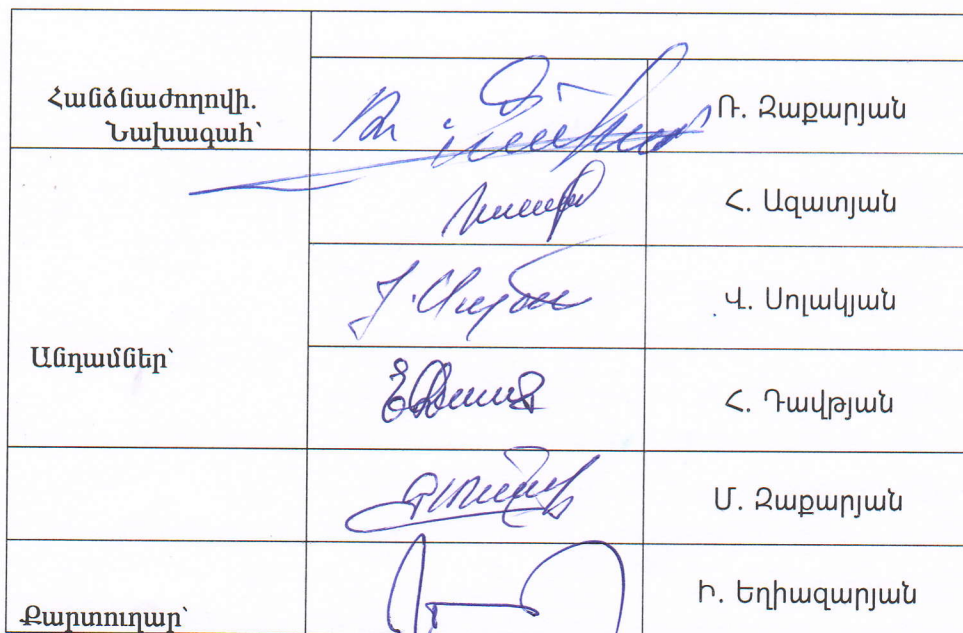 Հանձնաժողովի.
Նախագահ՝
Ռ. Զաքարյան
Հ. Ազատյան
Վ. Սոլակյան
Անդամներ՝
Հ. Դավթյան
Մ. Զաքարյան
Քարտուղար՝
Ի. Եղիազարյան